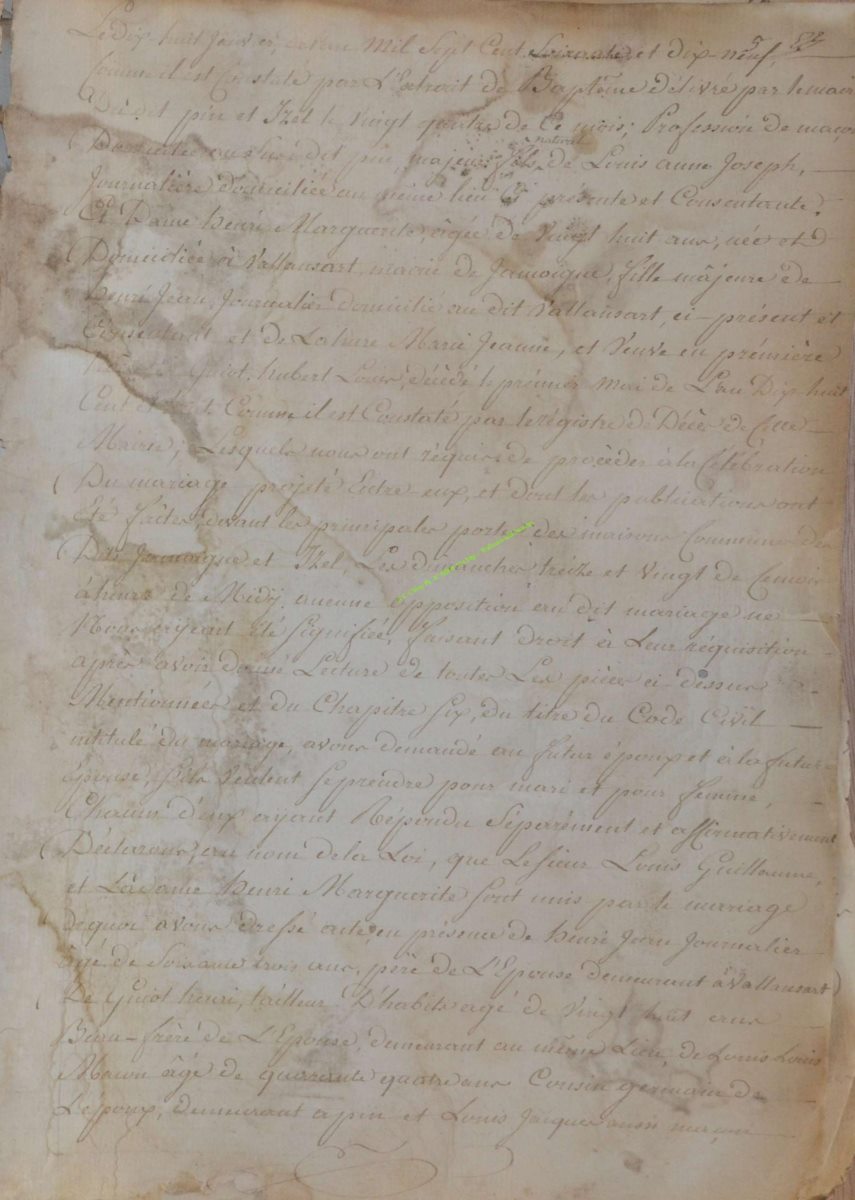 Le Dix huit Janvier, de l'an Mil Sept Cent Soixante et dix neuf,
Comme il est Constaté par L'Extrait de Baptême délivré par le mair
dudit pin et Izel le vingt quatre de Ce mois; Profession de maçon
Domicilié au dit pin, majeur fils naturel de Louis anne Joseph,
Journalière domiciliée au même lieu Ci présente et Consentante.
Et Dame henri Marguerite, âgée de vingt huit ans, née et
Domiciliée à Vallansart, mairie de Jamoigne, fille majeure de
henri Jean, Journalier domicilié au dit Vallansart, ci-présent et
Consentant et de Lahure Marie Jeanne, et Veuve en première
Guiot hubert Louis, décédé le prémier Mai de L'an Dix huit
Cent et huit. Comme il est Constaté par le régistre de Décès de Cette
Mairie; Lesquels nous ont réquis de procéder à la Célébration
Du mariage projeté Entre eux, et dont les publications ont
été faites devant les principales portes des maisons Communes des
Dits Jamoigne et Izel, Les dimanches treize et vingt de Ce mois
à heure de Midÿ, aucune opposition au dit mariage ne
Nous ayant été Signifiée, faisant droit à Leur réquisition
après avoir donné Lecture de toutes Les pièces ci-dessus
Mentionnées et du Chapitre Six, du titre du Code Civil
intitulé du mariage, avons demandé au futur époux et à la future
épouse, s'ils veulent Se prendre pour mari et pour femme,
Chacun d'eux ayant Répondu Séparément et affirmativement
Déclarons, au nom de la Loi, que Le Sieur Louis Guillaume,
et La dame henri Marguerite Sont unis par le mariage
De quoi avons dressé acte, en présence de henri Jean Journalier
âgé de Soixante trois ans, père de L'Epouse demeurant à Vallansart,
De Guiot henri, tailleur D'habits agé de vingt huit ans
Beau-frère de L'Epouse, demeurant au même Lieu, de Louis Louis
Maçon âgé de quarante quatre ans Cousin germain de
L'époux, demeurant a pin et Louis Jacques aussi maçon